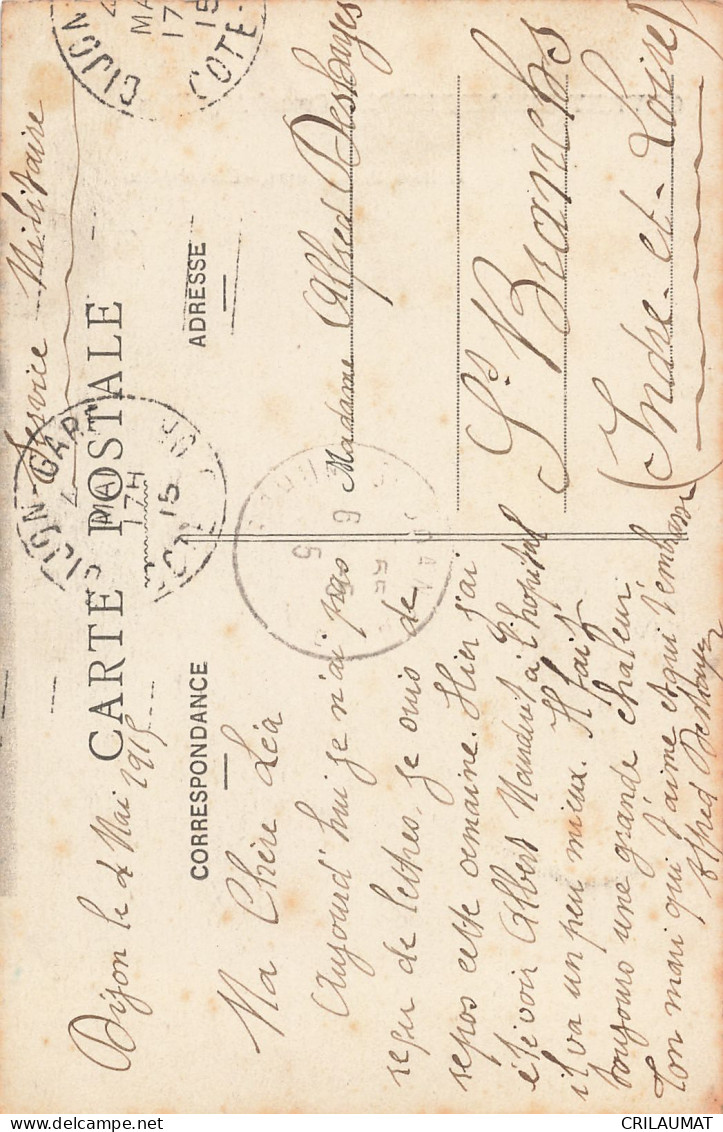 Service Militaire
CARTE POSTALE
CORRESPONDANCE
ADRESSE
Dijon le 4 Mai 1915
Ma Chère Léa
Aujourd'hui je n'ai pas
reçu de lettres, je suis de
repos cette semaine. Hier j'ai
été voir Albert à l'hopital
il va un peu mieux. Il fait
toujours une grande chaleur.
Ton mari qui j'aime et qui t'embrasse
Alfred Deshayes
Madame Alfred Deshayes
St Branchs
(Indre-et-Loire)
DIJON
MA
17
15
COTE-
DIJON-GARE
4
MAI
17H
15
COTE D'OR
6
5
delcampe.net
CRILAUMAT